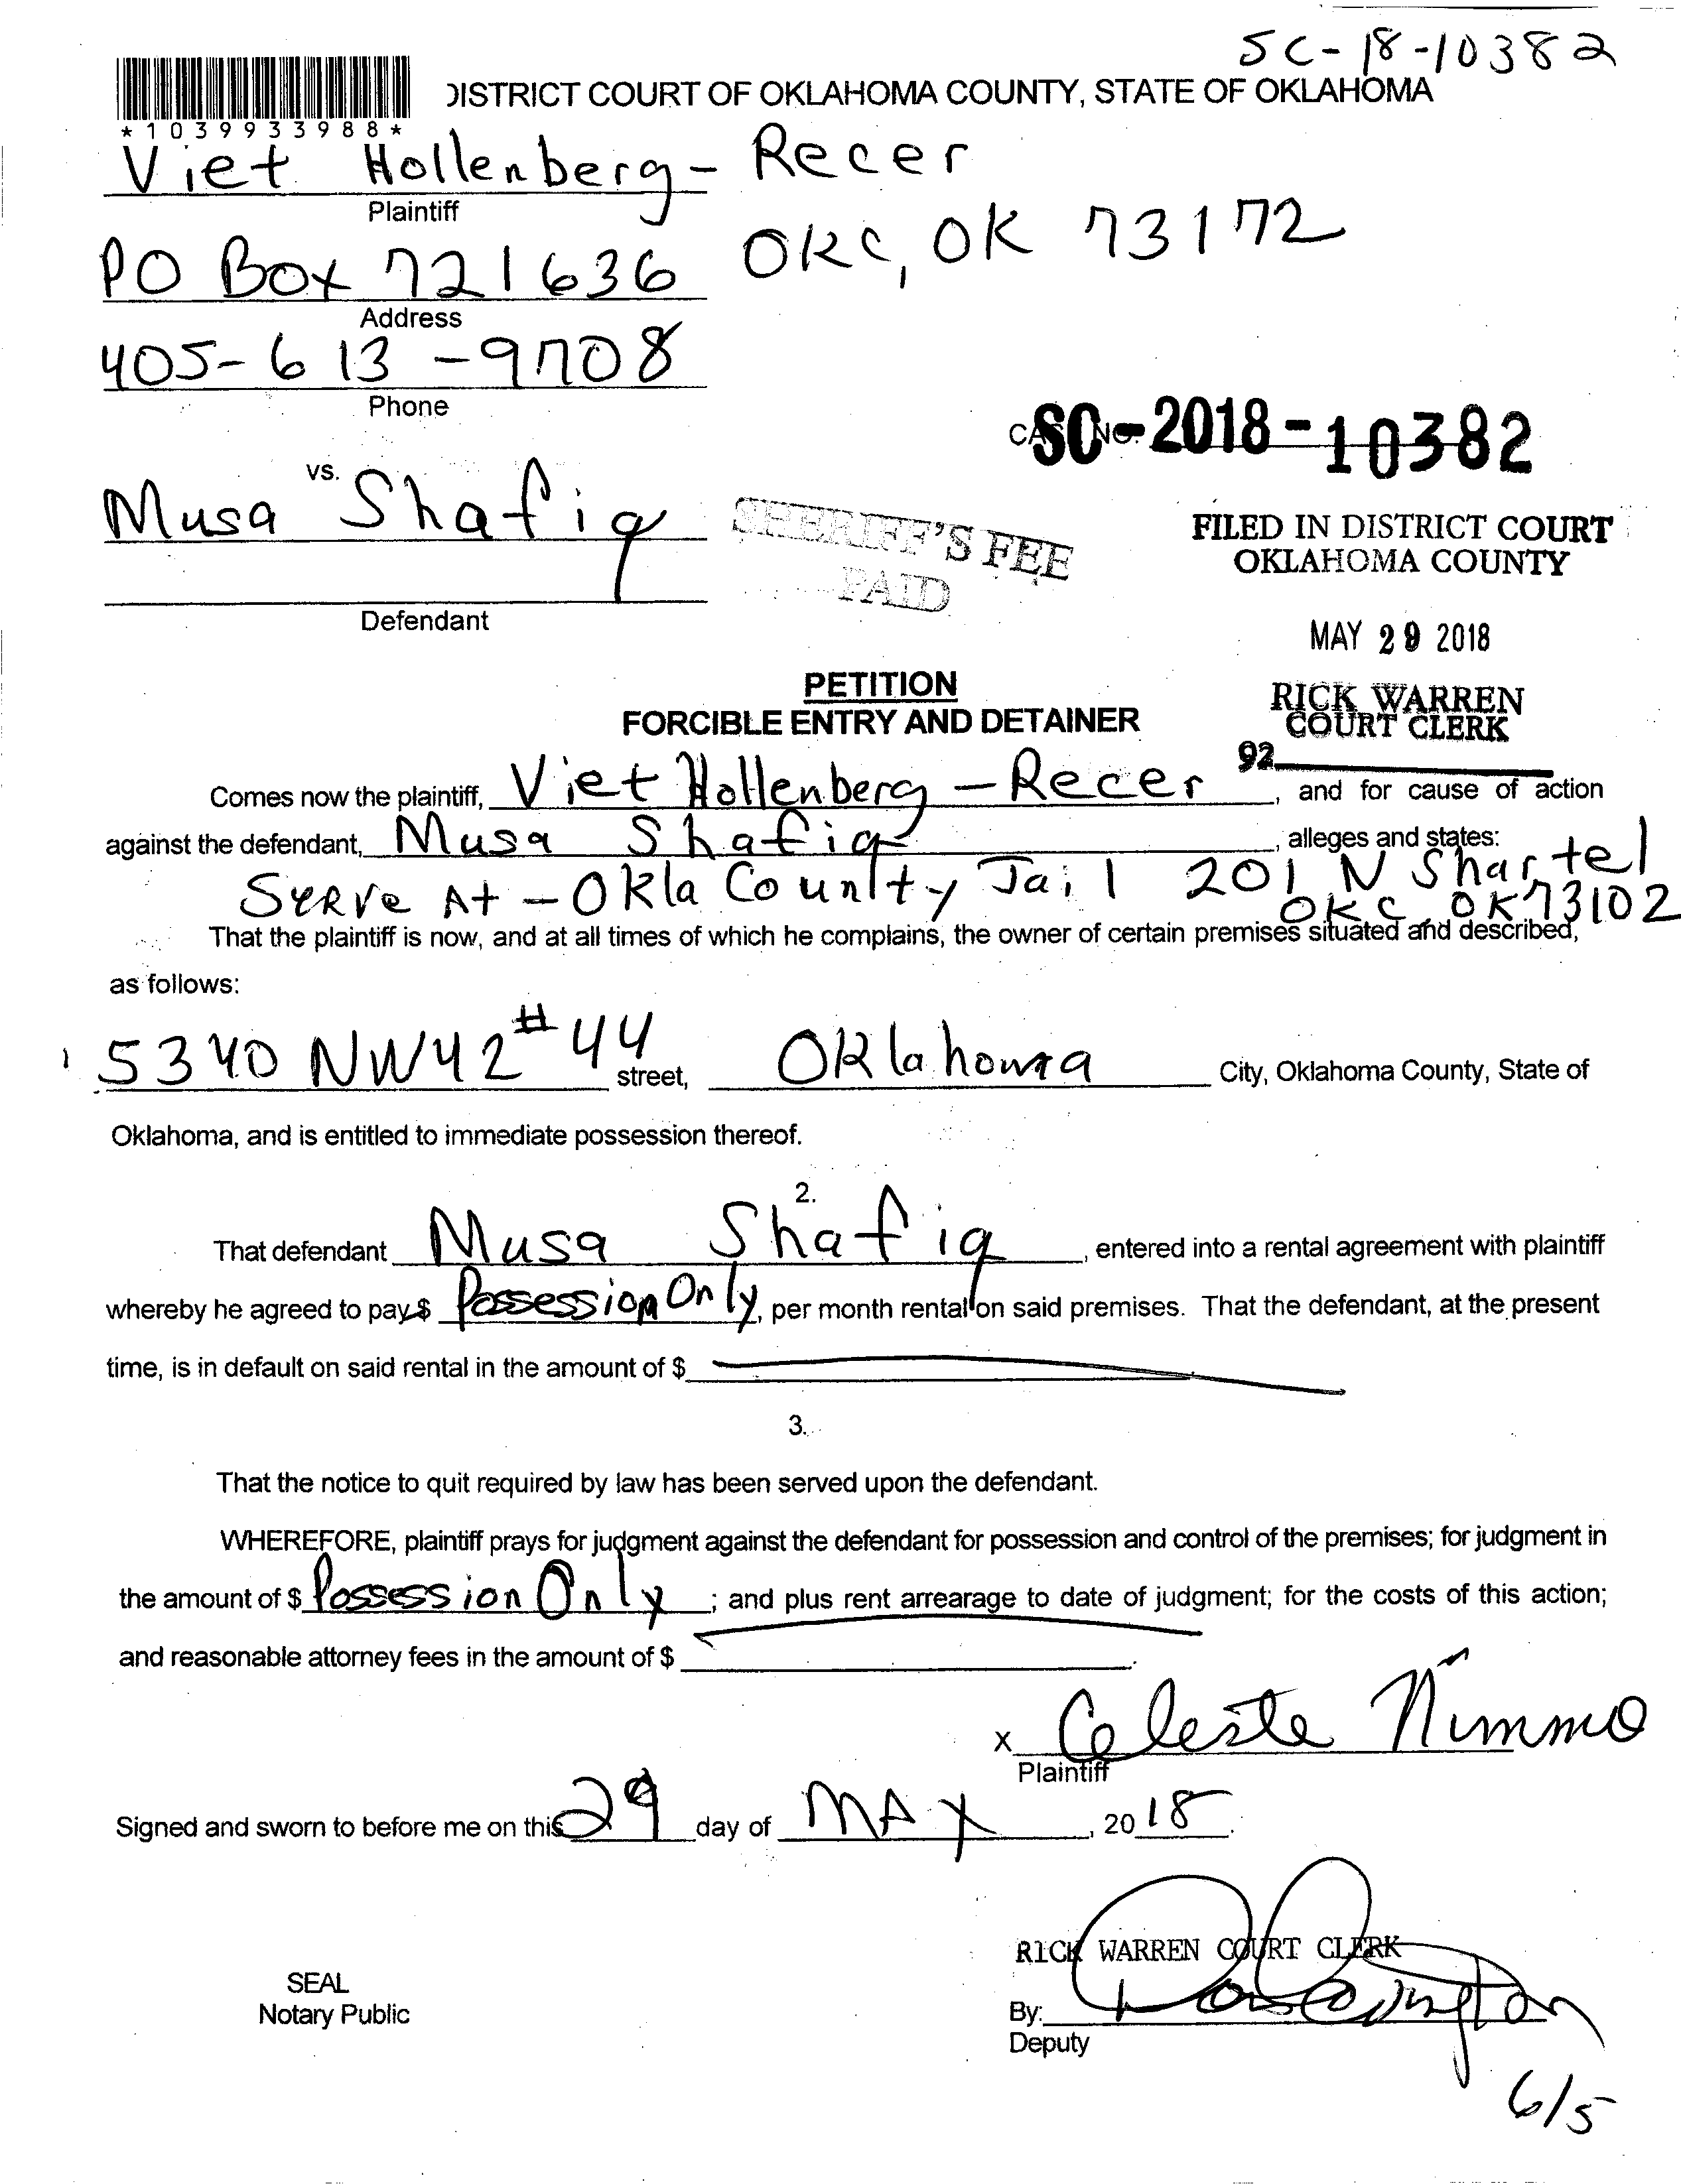 SC-18-10382
DISTRICT COURT OF OKLAHOMA COUNTY, STATE OF OKLAHOMA
*1039933988*
Viet Hollenberg-Recer
Plaintiff
PO Box 721636 OKC, OK 73172
Address
405-613-9708
Phone
SC-2018-10382
vs.
Musa Shafiq
SHERIFF'S FEE
PAID
FILED IN DISTRICT COURT
OKLAHOMA COUNTY
Defendant
MAY 29 2018
PETITION
FORCIBLE ENTRY AND DETAINER
RICK WARREN
COURT CLERK
92
Comes now the plaintiff, Viet Hollenberg-Recer, and for cause of action
against the defendant, Musa Shafiq, alleges and states:
Serve At - Okla County Jail 201 N Shartel
OKC OK 73102
That the plaintiff is now, and at all times of which he complains, the owner of certain premises situated and described,
as follows:
5340 NW42 #44 street, Oklahoma City, Oklahoma County, State of
Oklahoma, and is entitled to immediate possession thereof.
2.
That defendant Musa Shafiq, entered into a rental agreement with plaintiff
whereby he agreed to pay $ Possession Only, per month rental on said premises. That the defendant, at the present
time, is in default on said rental in the amount of $
3.
That the notice to quit required by law has been served upon the defendant.
WHEREFORE, plaintiff prays for judgment against the defendant for possession and control of the premises; for judgment in
the amount of $ Possession Only; and plus rent arrearage to date of judgment; for the costs of this action;
and reasonable attorney fees in the amount of $
x Celeste Nimmo
Plaintiff
Signed and sworn to before me on this 29 day of MAY, 2018.
RICK WARREN COURT CLERK
SEAL
Notary Public
By:
Deputy
6/5